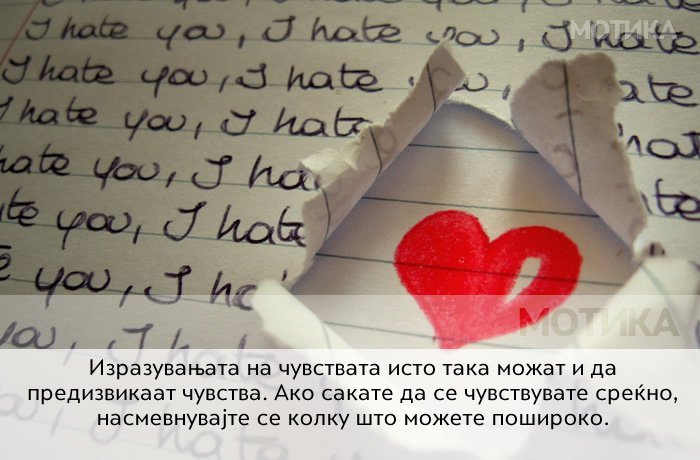 I hate you, I hate you, I
МОТИКА
I hate you, I hate you, I hate
I hate you, I hate you, ate
I hate you, I hate hat
hate you, I ha hate
ate you, I hate
e you, I ha
МОТИКА
Изразувањата на чувствата исто така можат и да
предизвикаат чувства. Ако сакате да се чувствувате среќно,
насмевнувајте се колку што можете пошироко.